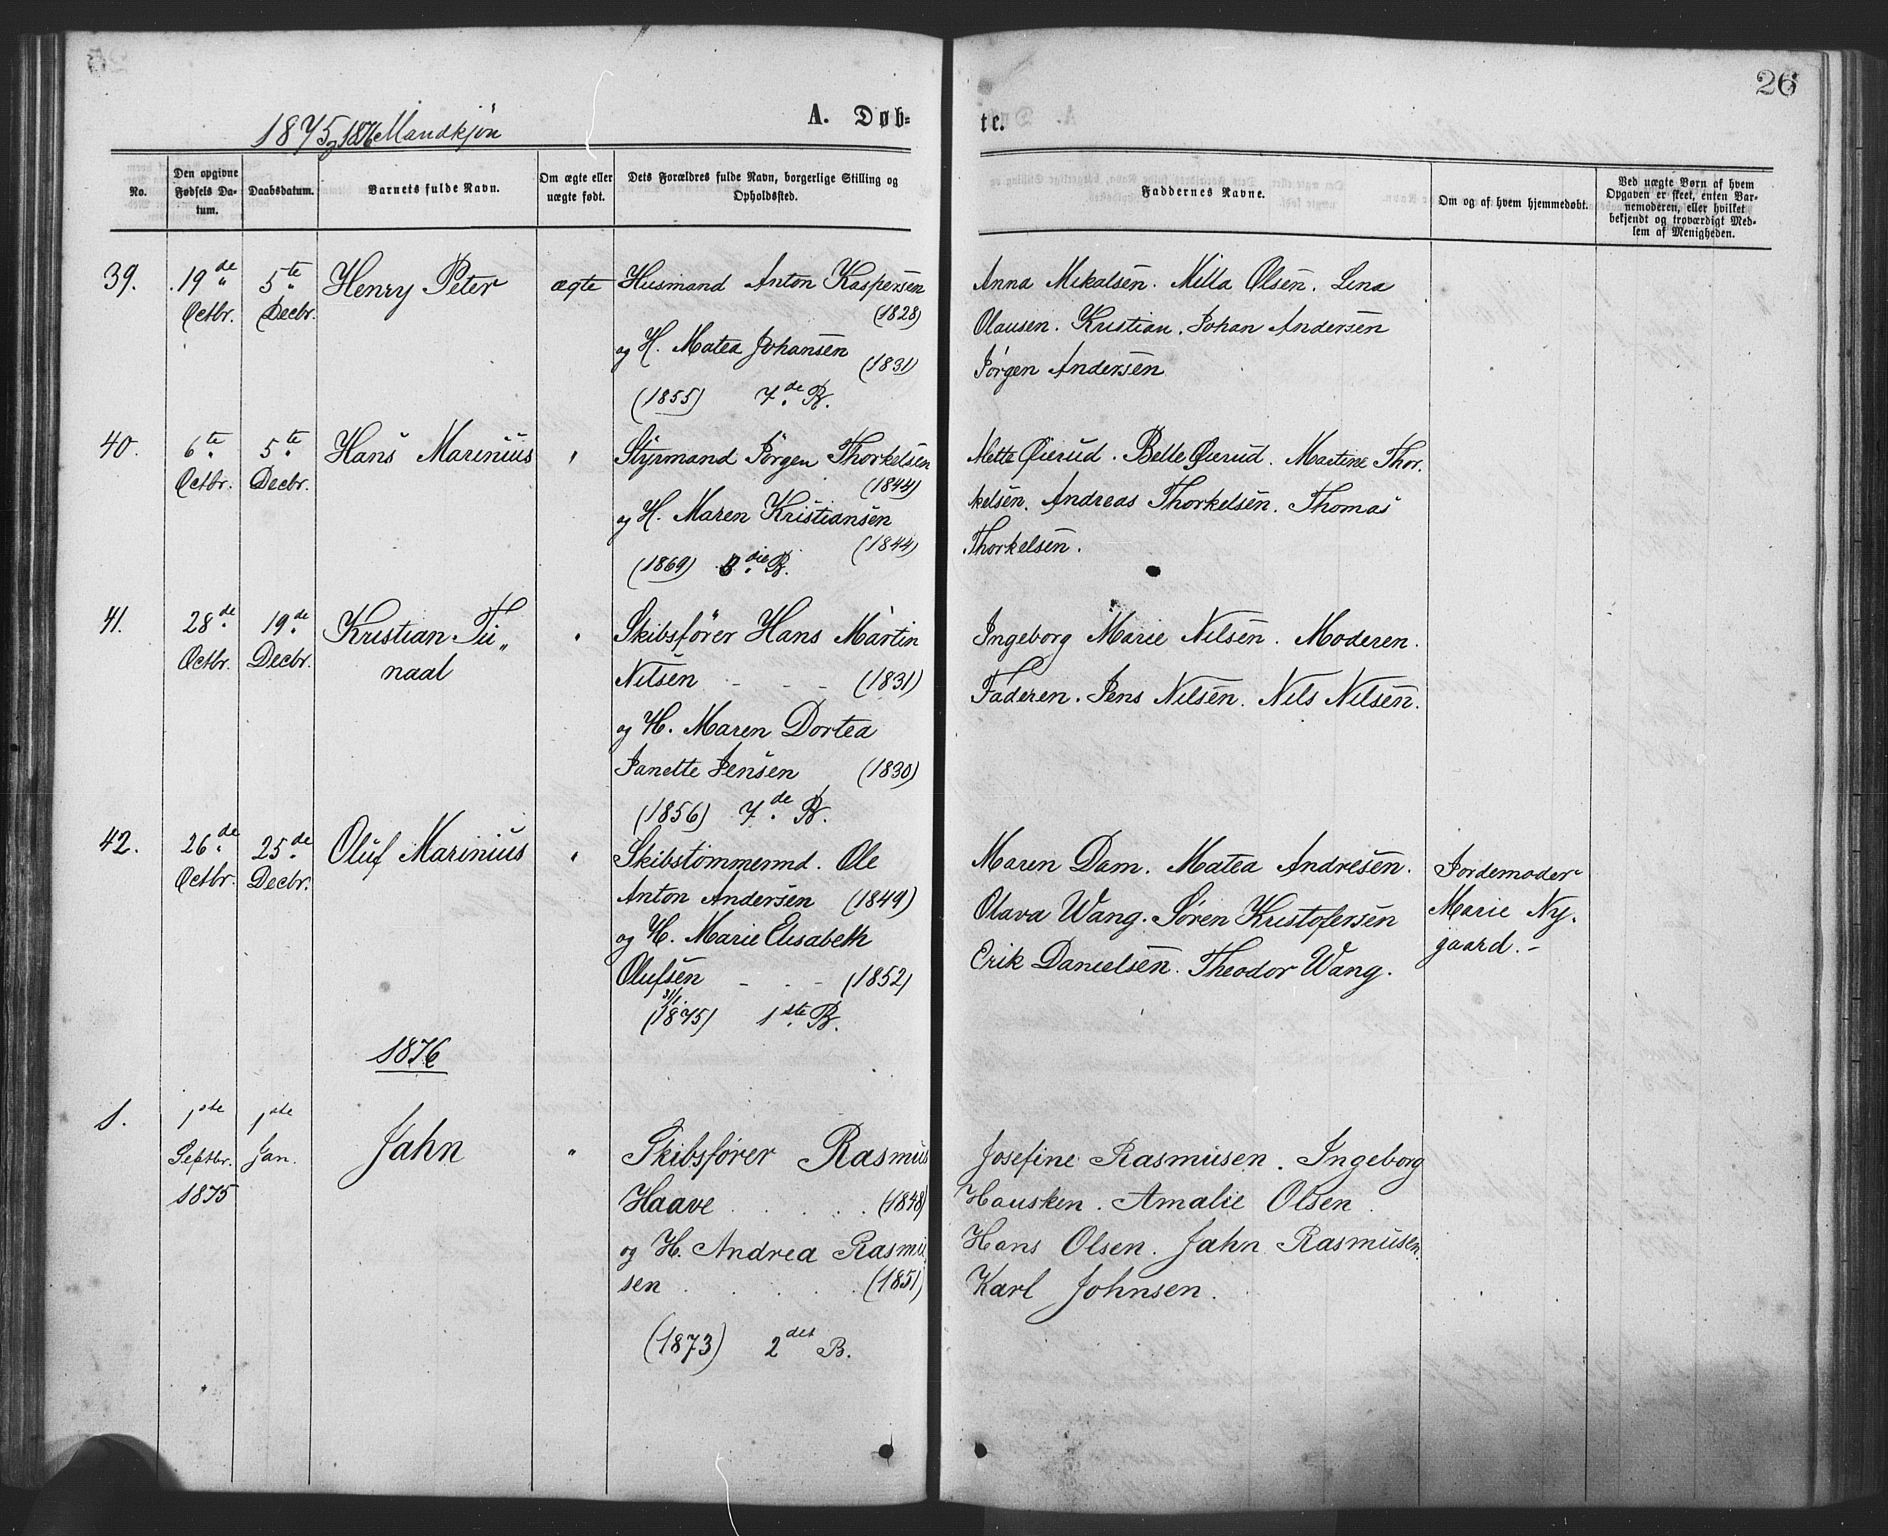 26
1875 og 1876 Mandkjøn
A. Døb-
te.
No.
Den opgivne Fødsels Da-tum.
Daabsdatum.
Barnets fulde Navn.
Om ægte eller uægte født.
Dets Forældres fulde Navn, borgerlige Stilling og Opholdssted.
Faddernes Navne.
Om og af hvem hjemmedøbt.
Ved uægte Børn af hvem Opgaven er skeet, enten Bar-nemoderen, eller hvilket bekjendt og troværdigt Med-lem af Menigheden.
39. 19de 5te Henry Peter ægte Husmand Anton Kaspersen
Octbr. Decbr. (1828)
og H. Matea Johansen
(1831)
(1855) 7de B.
Anna Mikalsen. Milla Olsen. Lina
Olausen. Kristian. Johan Andersen
Jørgen Andersen
40. 6te 5te Hans Marinius " Styrmand Jørgen Thorkelsen
Octbr. Decbr. (1844)
og H. Maren Kristiansen
(1844)
(1869) 3die B.
Mette Øurud. Belle Øurud. Martine Thor-
kelsen. Andreas Thorkelsen. Thomas
Thorkelsen.
41. 28de 19de Kristian Tu- " Skibsfører Hans Martin
Octbr. Decbr. naal Nilsen - - - (1831)
og H. Maren Dortea
Janette Jensen (1830)
(1856) 7de B.
Ingeborg Marie Nilsen. Moderen.
Faderen. Jens Nilsen. Nils Nilsen.
42. 26de 25de Oluf Marinius " Skibstømmermd. Ole
Octbr. Decbr. Anton Andersen (1849)
og H. Marie Elisabeth
Olufsen - - - (1852)
31/1
(1875) 1ste B.
Maren Dam. Matea Andresen.
Olava Wang. Søren Kristofersen
Erik Danielsen. Theodor Wang.
Jordemoder
Marie Ny-
gaard. -
1876
1. 1ste 1ste Jahn " Skibsfører Rasmus
Septbr. Jan.
1875 Haave . . . . . (1848)
og H. Andrea Rasmu
sen . . . . . (1851)
(1873) 2det B.
Josefine Rasmusen. Ingeborg
Hausken. Amalie Olsen
Hans Olsen. Jahn Rasmusen.
Karl Johnsen.